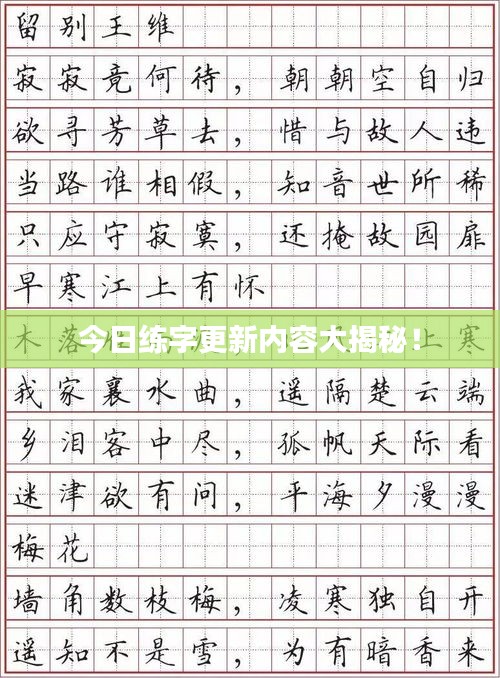 留别王维
寂寂竟何待，朝朝空自归
欲寻芳草去，惜与故人违
当路谁相假，知音世所稀
只应守寂寞，还掩故园扉
早寒江上有怀
木落 上寒
今日练字更新内容大揭秘！
我家襄水曲，遥隔楚云端
乡泪客中尽，孤帆天际看
迷津欲有问，平海夕漫漫
梅花
墙角数枝梅，凌寒独自开
遥知不是雪，为有暗香来